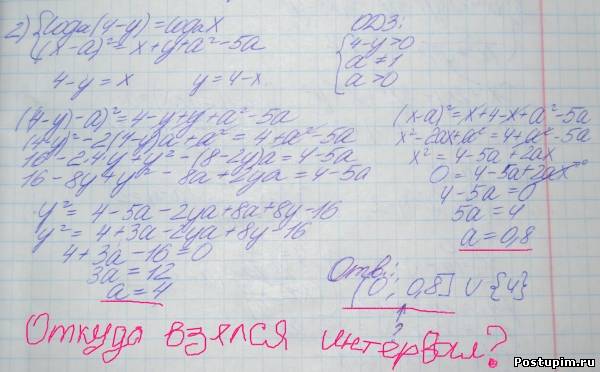 2) { log_a(4-y) = log_a x
(x-a)² = x+y+a²-5a
ОДЗ:
{ 4-y>0
a≠1
a>0
4-y=x y=4-x
((4-y)-a)² = 4-y+y+a²-5a
(4-y)²-2(4-y)a+a² = 4+a²-5a
16-2·4y+y²-(8-2y)a = 4-5a
16-8y+y²-8a+2ya = 4-5a
y² = 4-5a-2ya+8a+8y-16
y² = 4+3a-2ya+8y-16
4+3a-16=0
3a=12
a=4
(x-a)² = x+4-x+a²-5a
x²-2ax+a² = 4+a²-5a
x² = 4-5a+2ax
0 = 4-5a+2ax
4-5a=0
5a=4
a=0,8
Отв:
(0; 0,8] ∪ {4}
?
Откуда взялся интервал?
Postupim.ru